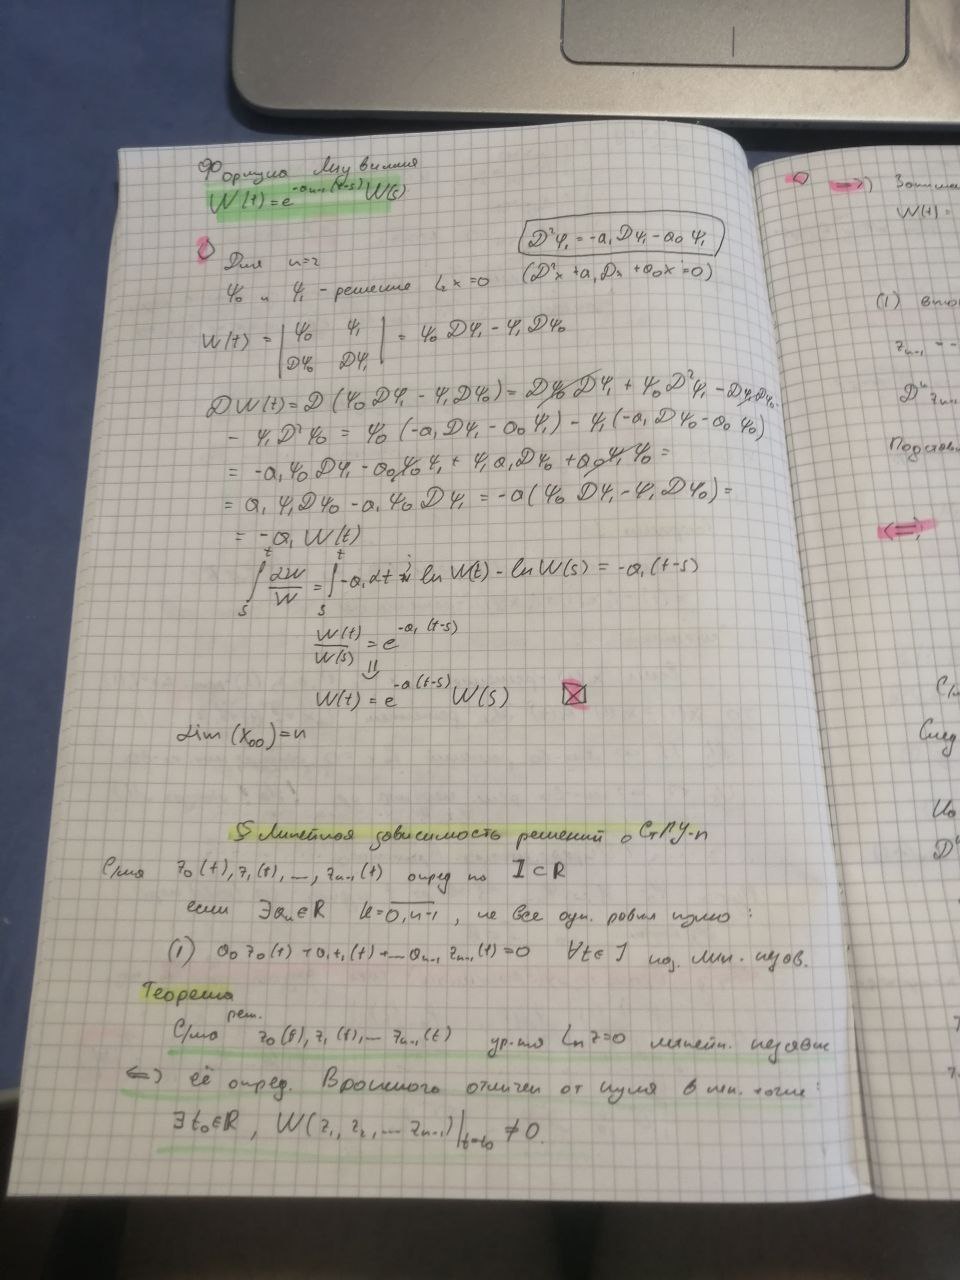 Формула Лиувилля
W(t) = e^{-a_{n-1}(t-s)} W(s)
D²φ₁ = -a₁Dφ₁ - a₀φ₁
Для n=2 (D²x + a₁Dx + a₀x = 0)
φ₀ и φ₁ - решение L₂x=0
W(t) = | φ₀ φ₁ | = φ₀Dφ₁ - φ₁Dφ₀
| Dφ₀ Dφ₁ |
DW(t) = D(φ₀Dφ₁ - φ₁Dφ₀) = Dφ₀Dφ₁ + φ₀D²φ₁ - Dφ₁Dφ₀ -
- φ₁D²φ₀ = φ₀(-a₁Dφ₁ - a₀φ₁) - φ₁(-a₁Dφ₀ - a₀φ₀)
= -a₁φ₀Dφ₁ - a₀φ₀φ₁ + φ₁a₁Dφ₀ + a₀φ₁φ₀ =
= a₁φ₁Dφ₀ - a₁φ₀Dφ₁ = -a(φ₀Dφ₁ - φ₁Dφ₀) =
= -a₁W(t)
∫ₛᵗ dW/W = ∫ₛᵗ -a₁dt ; ln W(t) - ln W(s) = -a₁(t-s)
W(t)/W(s) = e^{-a₁(t-s)}
⇓
W(t) = e^{-a(t-s)} W(s) ☒
dim(X₀₀) = n
§ Линейная зависимость решений о СтЛУ-n
С/ма z₀(t), z₁(t), ..., z_{n-1}(t) опред на I ⊂ R
если ∃aₖ∈R k=0,n-1, не все одн. равны нулю:
(1) a₀z₀(t) + a₁z₁(t) + ... a_{n-1}z_{n-1}(t) = 0 ∀t∈I наз. лин.
Теорема
реш.
С/ма z₀(t), z₁(t), ... z_{n-1}(t) ур-ия Lₙz=0 линейн. независ
⇔ её опред. Вронского отличен от нуля в точке:
∃t₀∈R, W(z₁, z₂, ... z_{n-1})|_{t=t₀} ≠ 0.
⇒)
W(t) =
(1)
z_{n-1} = -
Dⁿ z_{n-1}
Подстав
⇐)
С/м
След